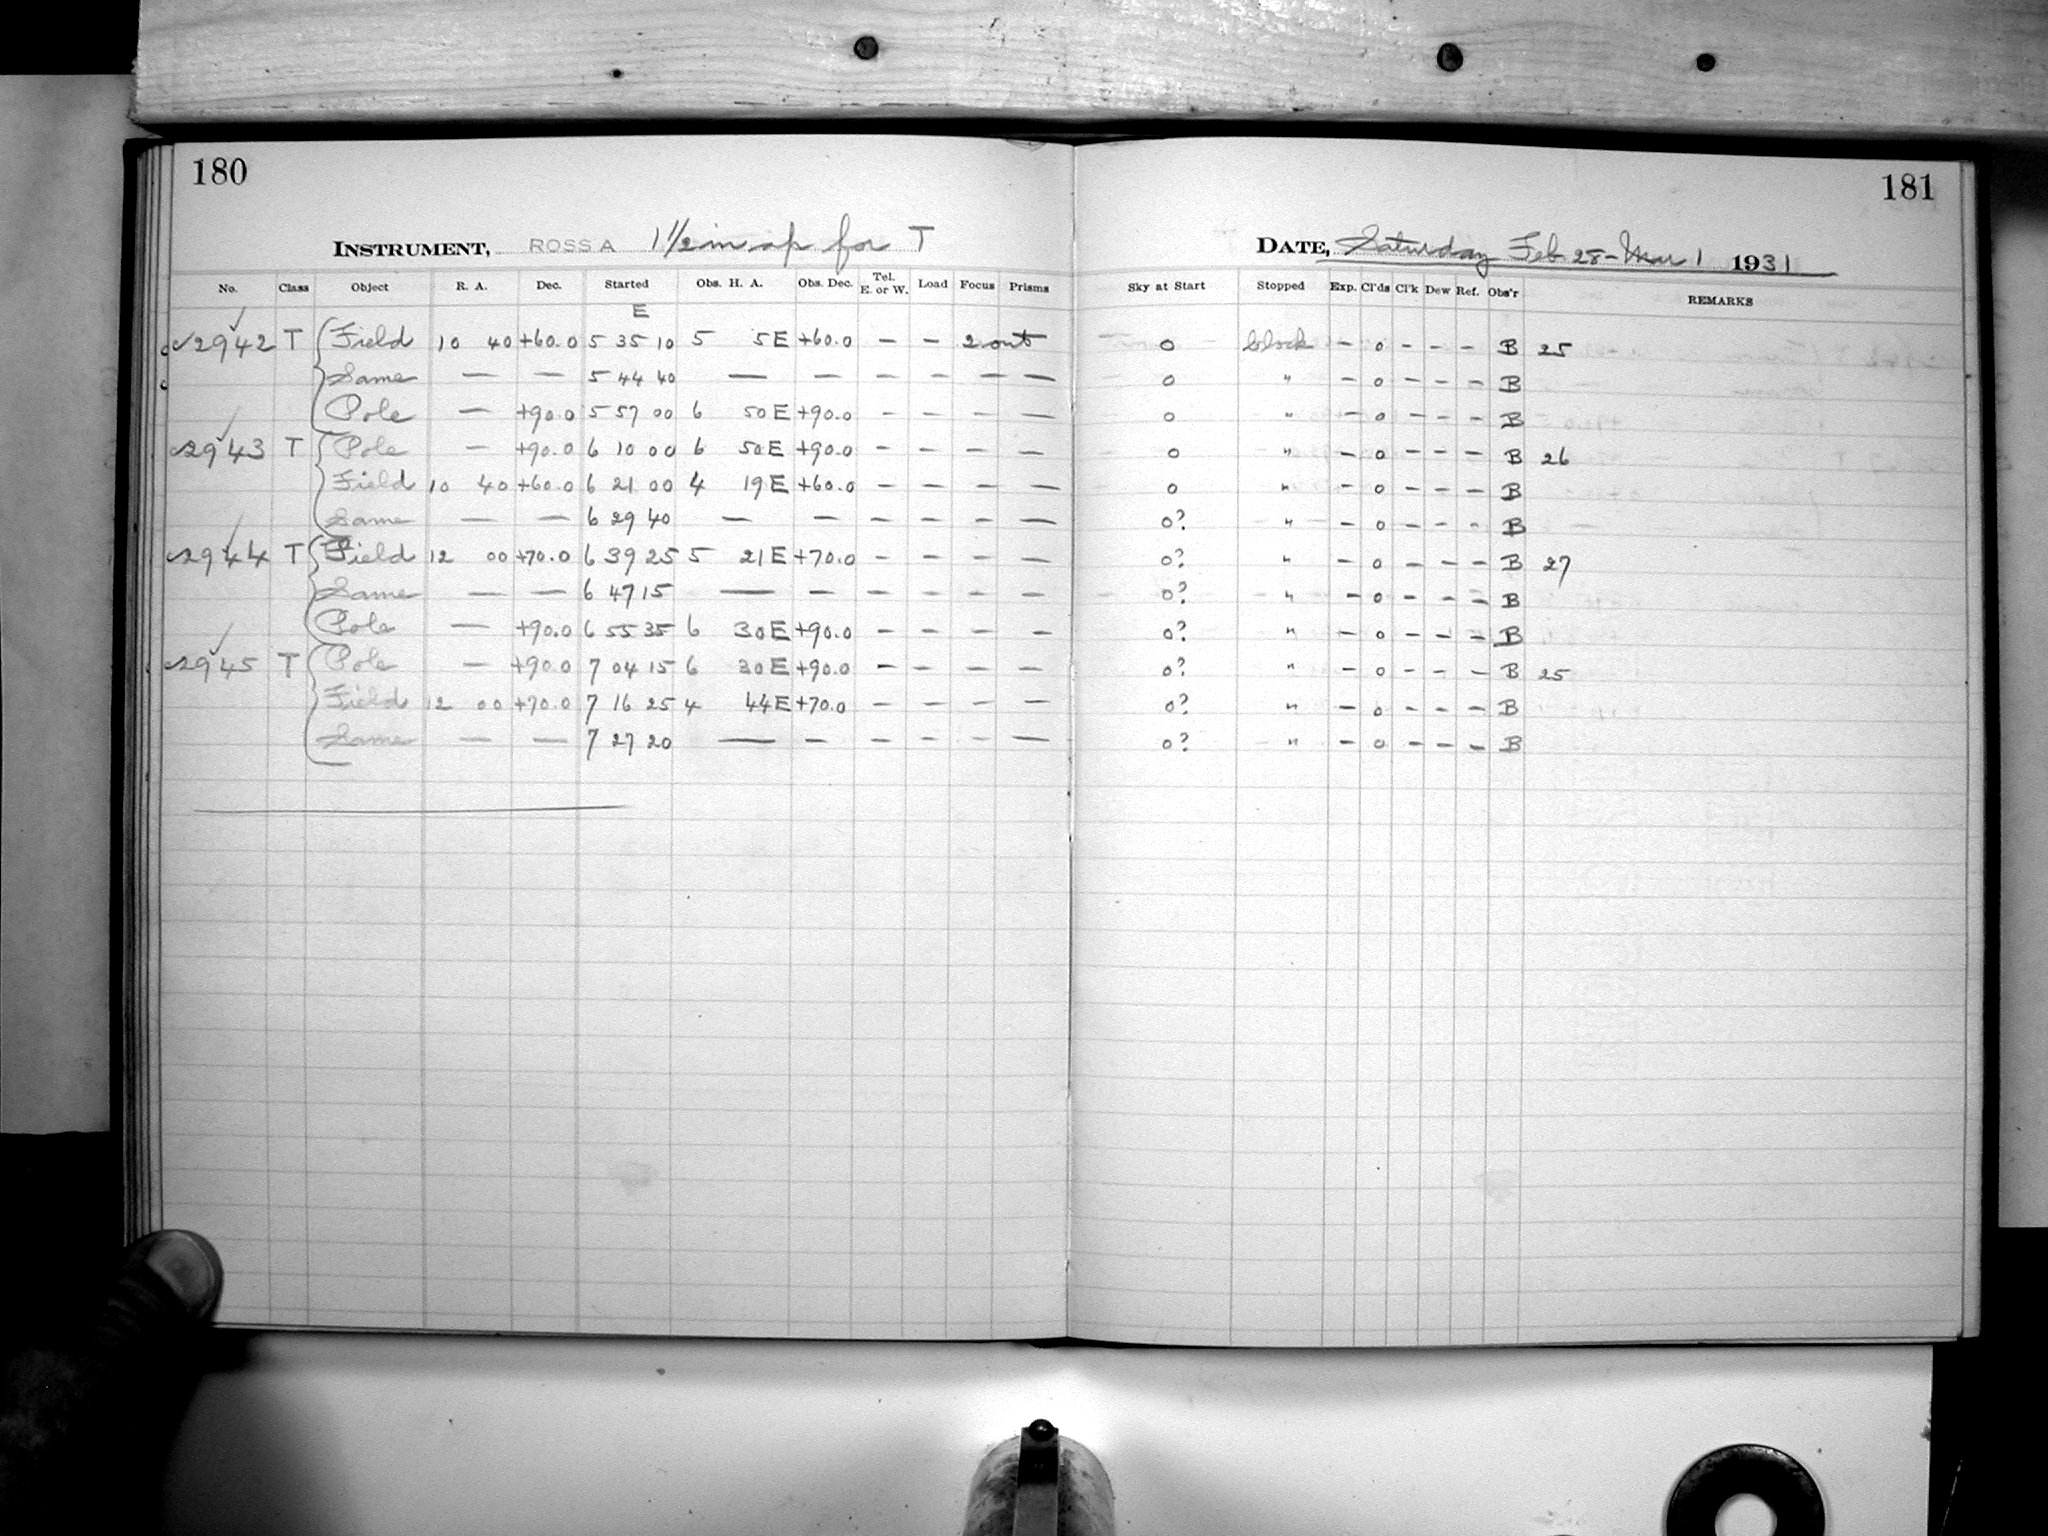 180
181
INSTRUMENT, ROSS A 1 1/2 in ap for T
DATE, Saturday Feb 28 - Mar 1 1931
No. Class Object R. A. Dec. Started Obs. H. A. Obs. Dec. Tel. E. or W. Load Focus Prisms Sky at Start Stopped Exp. Cl'ds Cl'k Dew Ref. Obs'r REMARKS
E
2942 T Field 10 40 +60.0 5 35 10 5 5 E +60.0 — — 2 out 0 clock — 0 - - - B 25
Same — — 5 44 40 — — — — — — 0 " — 0 - - - B
Pole — +90.0 5 57 00 6 50 E +90.0 - - - — 0 " — 0 - - - B
2943 T Pole — +90.0 6 10 00 6 50 E +90.0 - - - — 0 " — 0 - - - B 26
Field 10 40 +60.0 6 21 00 4 19 E +60.0 - - - — 0 " — 0 - - - B
Same — — 6 29 40 — — — — — — 0? " — 0 - - - B
2944 T Field 12 00 +70.0 6 39 25 5 21 E +70.0 - - - — 0? " — 0 - - - B 27
Same — — 6 47 15 — — — — — — 0? " — 0 - - - B
Pole — +90.0 6 55 35 6 30 E +90.0 - - - — 0? " — 0 - - - B
2945 T Pole — +90.0 7 04 15 6 30 E +90.0 - - - — 0? " — 0 - - - B 25
Field 12 00 +70.0 7 16 25 4 44 E +70.0 - - - — 0? " — 0 - - - B
Same — — 7 27 20 — — — — — — 0? " — 0 - - - B